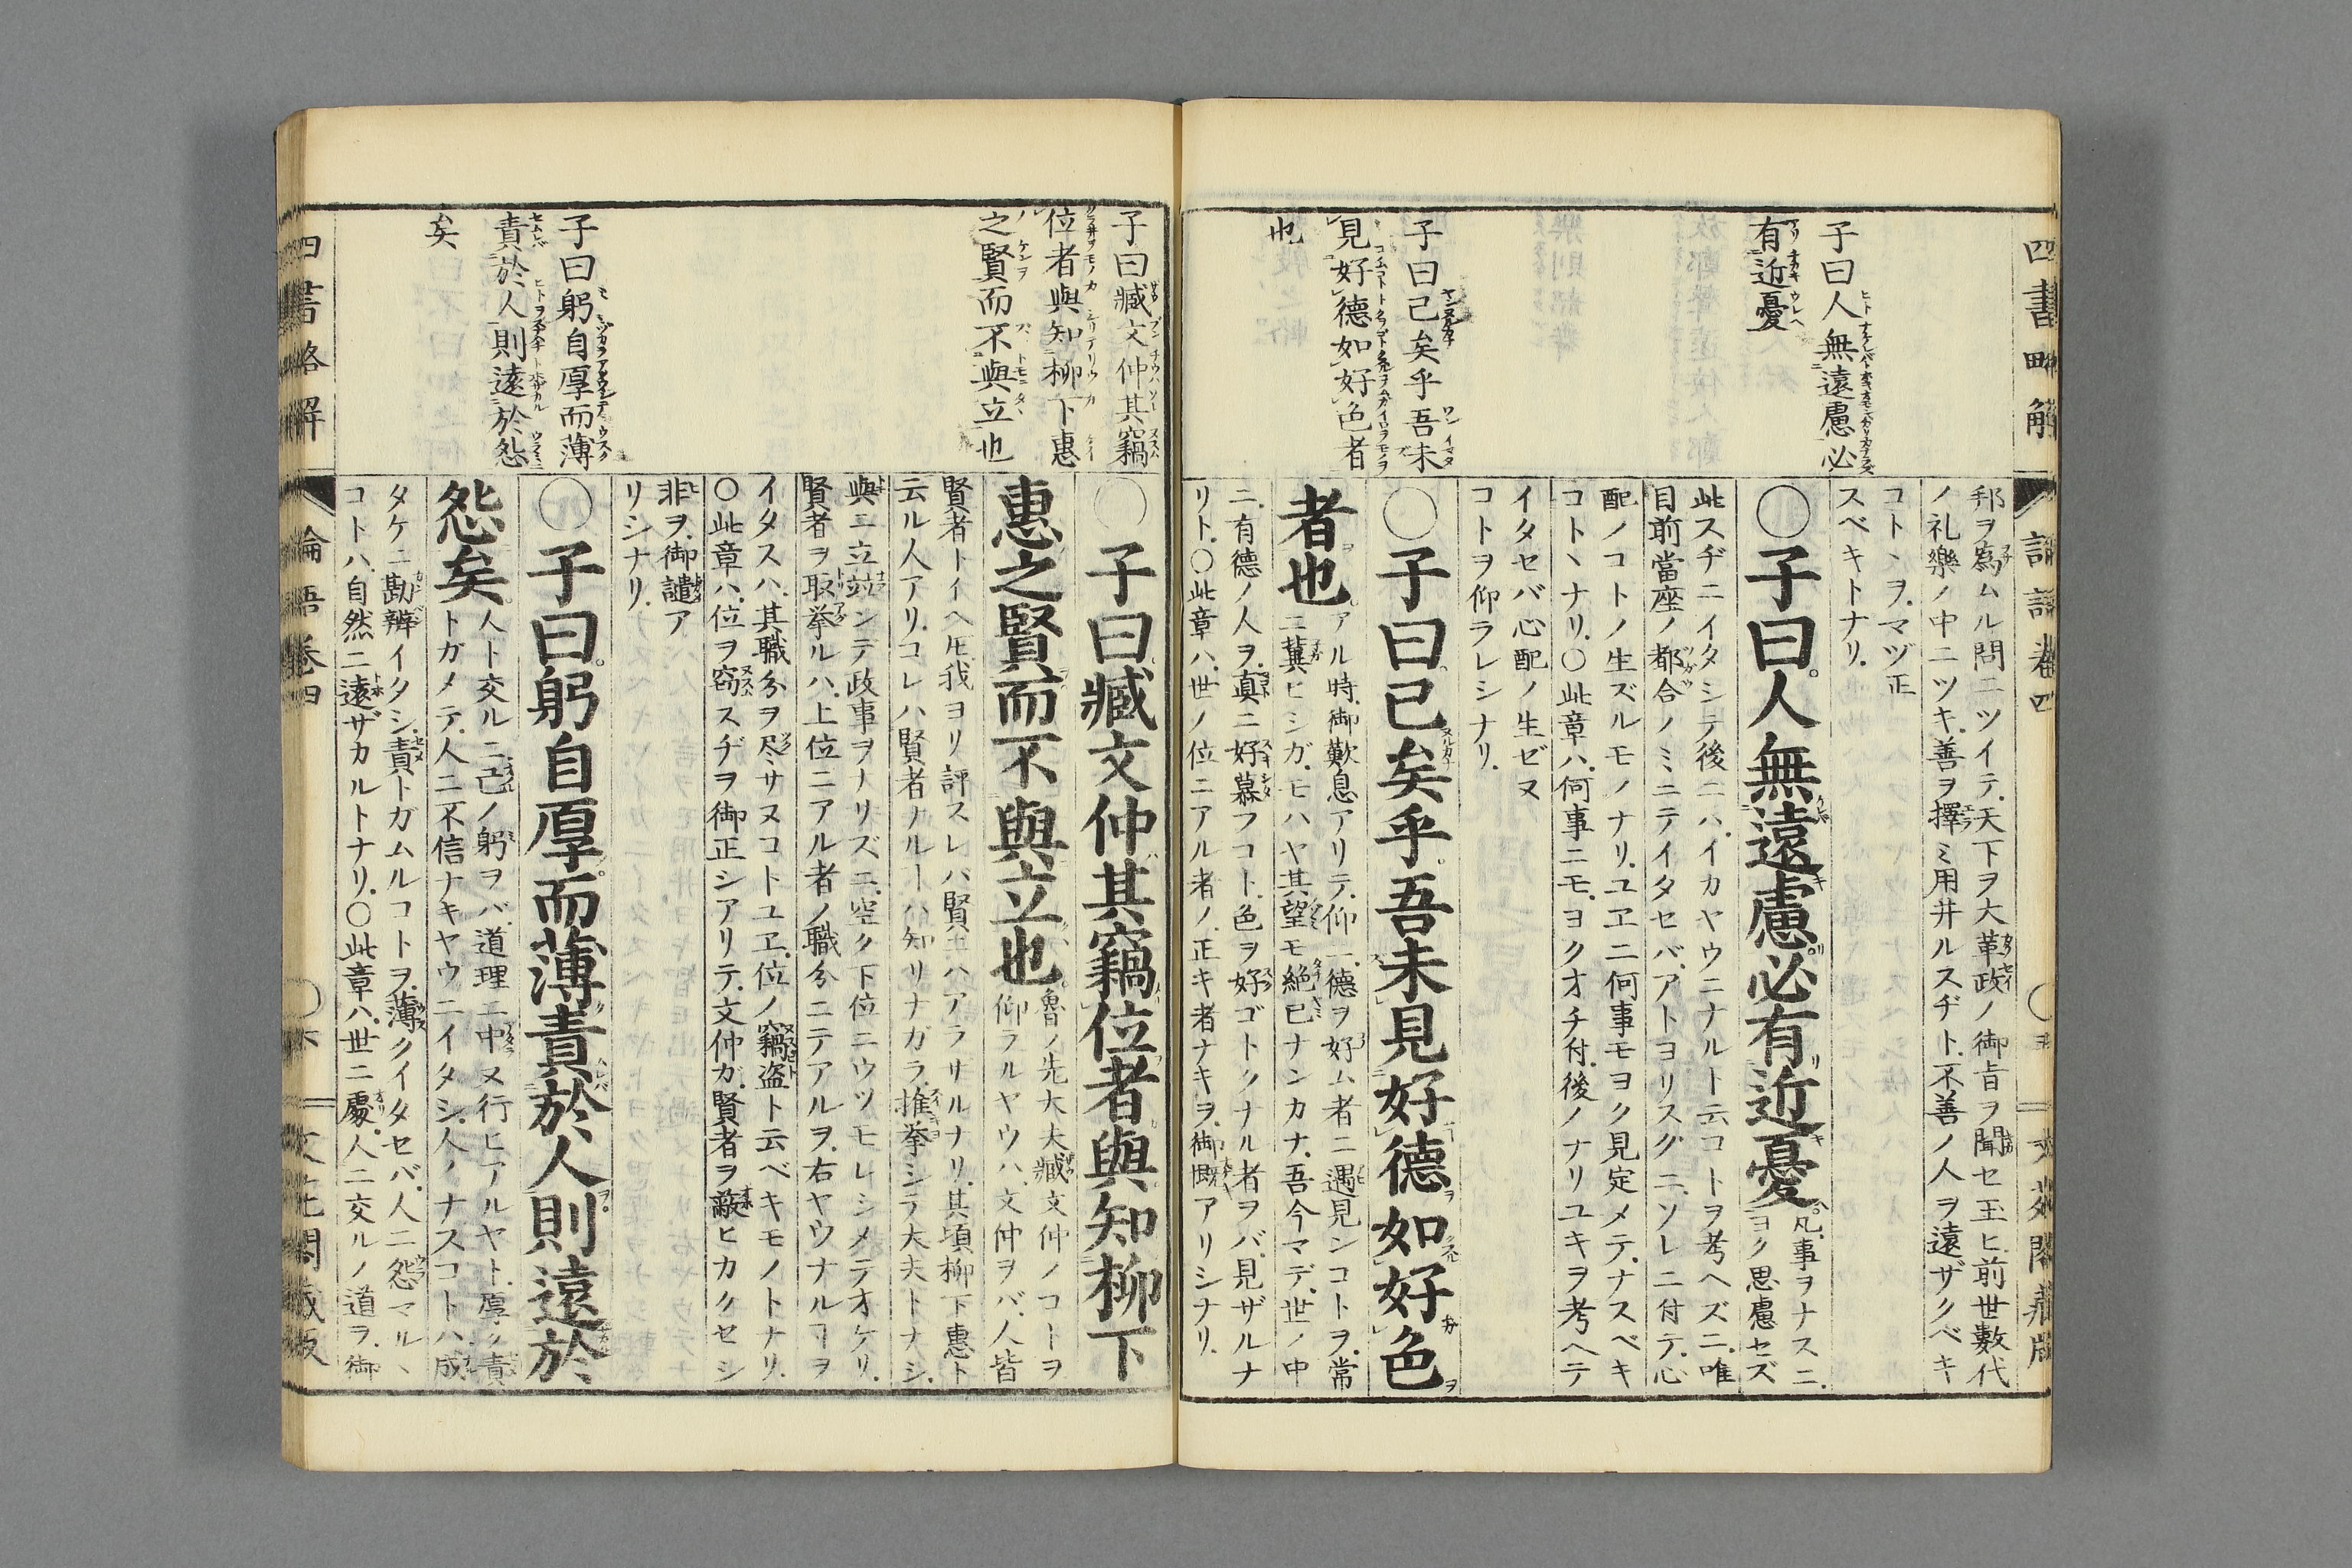 四書略解
論語卷四
〇五
文苑閣藏版
子曰人無遠慮必
有近憂
子曰已矣乎吾未
見好德如好色者
也
邦ヲ爲ムル問ニツイテ、天下ヲ大革政ノ御旨ヲ聞セ玉ヒ、前世數代
ノ礼樂ノ中ニツキ、善ヲ擇ミ用井ルスヂト、不善ノ人ヲ遠ザクベキ
コトヽヲ、マヅ正
スベキトナリ、
〇子曰人無遠慮必有近憂
凡、事ヲナスニ、
ヨク思慮セズ
此スヂニイタシテ後ニハ、イカヤウニナルト云コトヲ考ヘズニ、唯
目前當座ノ都合ノミニテイタセバ、アトヨリスグニ、ソレニ付テ、心
配ノコトノ生ズルモノナリ、ユヱニ何事モヨク見定メテ、ナスベキ
コトヽナリ、〇此章ハ、何事ニモ、ヨクオチ付、後ノナリユキヲ考ヘテ
イタセバ心配ノ生ゼヌ
コトヲ仰ラレシナリ、
〇子曰已矣乎吾未見好德如好色
者也
アル時、御歎息アリテ、仰ニ、德ヲ好ム者ニ遇見ンコトヲ、常
ニ冀ヒシガ、モハヤ其望モ絶已ナンカナ、吾今マデ、世ノ中
ニ、有德ノ人ヲ、眞ニ好慕フコト、色ヲ好ゴトクナル者ヲバ、見ザルナ
リト、〇此章ハ、世ノ位ニアル者ノ、正キ者ナキヲ、御慨アリシナリ、
子曰臧文仲其竊
位者與知柳下惠
之賢而不與立也
子曰躬自厚而薄
責於人則遠於怨
矣
〇子曰臧文仲其竊位者與知柳下
惠之賢而不與立也
魯ノ先大夫臧文仲ノコトヲ
仰ラルヤウハ、文仲ヲバ、人皆
賢者トイヘ𪜈我ヨリ評スレバ賢者ニハアラサルナリ、其頃柳下惠ト
云ル人アリ、コレハ賢者ナルヿハ知リナガラ、推挙シテ大夫トナシ、
與ニ立並ンデ政事ヲトリズニ、空ク下位ニウヅモレシメテオケリ、
賢者ヲ取挙ルハ、上位ニアル者ノ職分ニテアルヲ、右ヤウナルヿヲ
イタスハ、其職分ヲ尽サヌコトユヱ、位ノ竊盗ト云ベキモノトナリ、
〇此章ハ、位ヲ窃スヂヲ御正シアリテ、文仲ガ、賢者ヲ蔽ヒカクセシ
非ヲ、御譴ア
リシナリ、
〇子曰躬自厚而薄責於人則遠於
怨矣
人ト交ルニ、己ノ躬ヲバ、道理ニ中ヌ行ヒアルヤト、厚ク責
トガメテ、人ニ不信ナキヤウニイタシ、人ノナスコトハ、成
タケニ勘辨イタシ、責トガムルコトヲ、薄クイタセバ、人ニ怨マルヽ
コトハ、自然ニ遠ザカルトナリ、〇此章ハ、世ニ處、人ニ交ルノ道ヲ、御
四書略解
論語卷四
〇六
文苑閣藏版